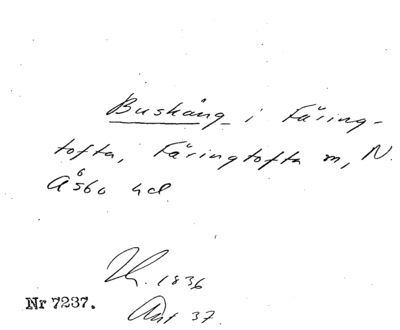 Buskäng i Färing-
tofta, Färingtofta sn, N.
Åsbo hd
1836
Nr 7237.
Ant 37.